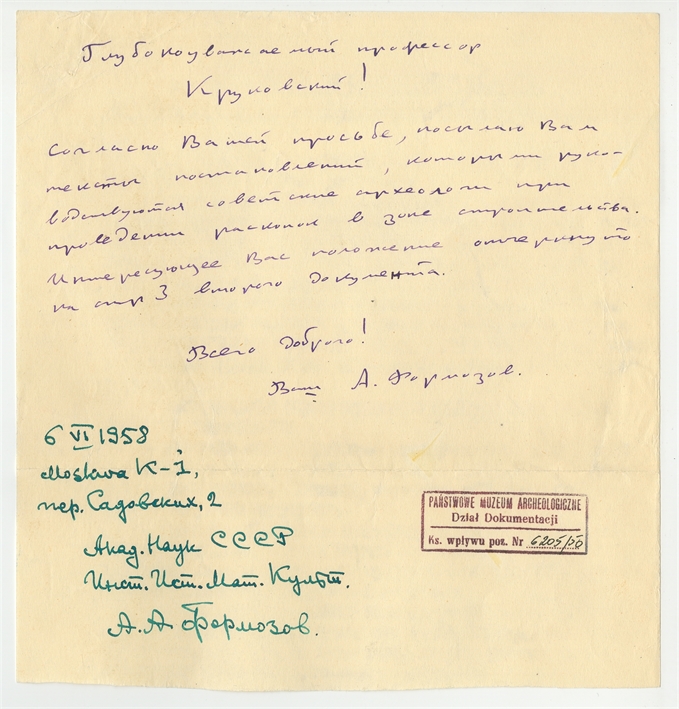 Глубокоуважаемый профессор
Круковский!
Согласно Вашей просьбе, посылаю Вам
тексты постановлений, которыми руко-
водствуются советские археологи при
проведении раскопок в зоне строительства.
Интересующее Вас положение отчеркнуто
на стр 3 второго документа.
Всего доброго!
Ваш А. Формозов.
6 VI 1958
Moskwa K-1,
пер. Садовских, 2
Акад. Наук СССР
Инст. Ист. Мат. Культ.
А. А. Формозов.
PAŃSTWOWE MUZEUM ARCHEOLOGICZNE
Dział Dokumentacji
Ks. wpływu poz. Nr 6205/